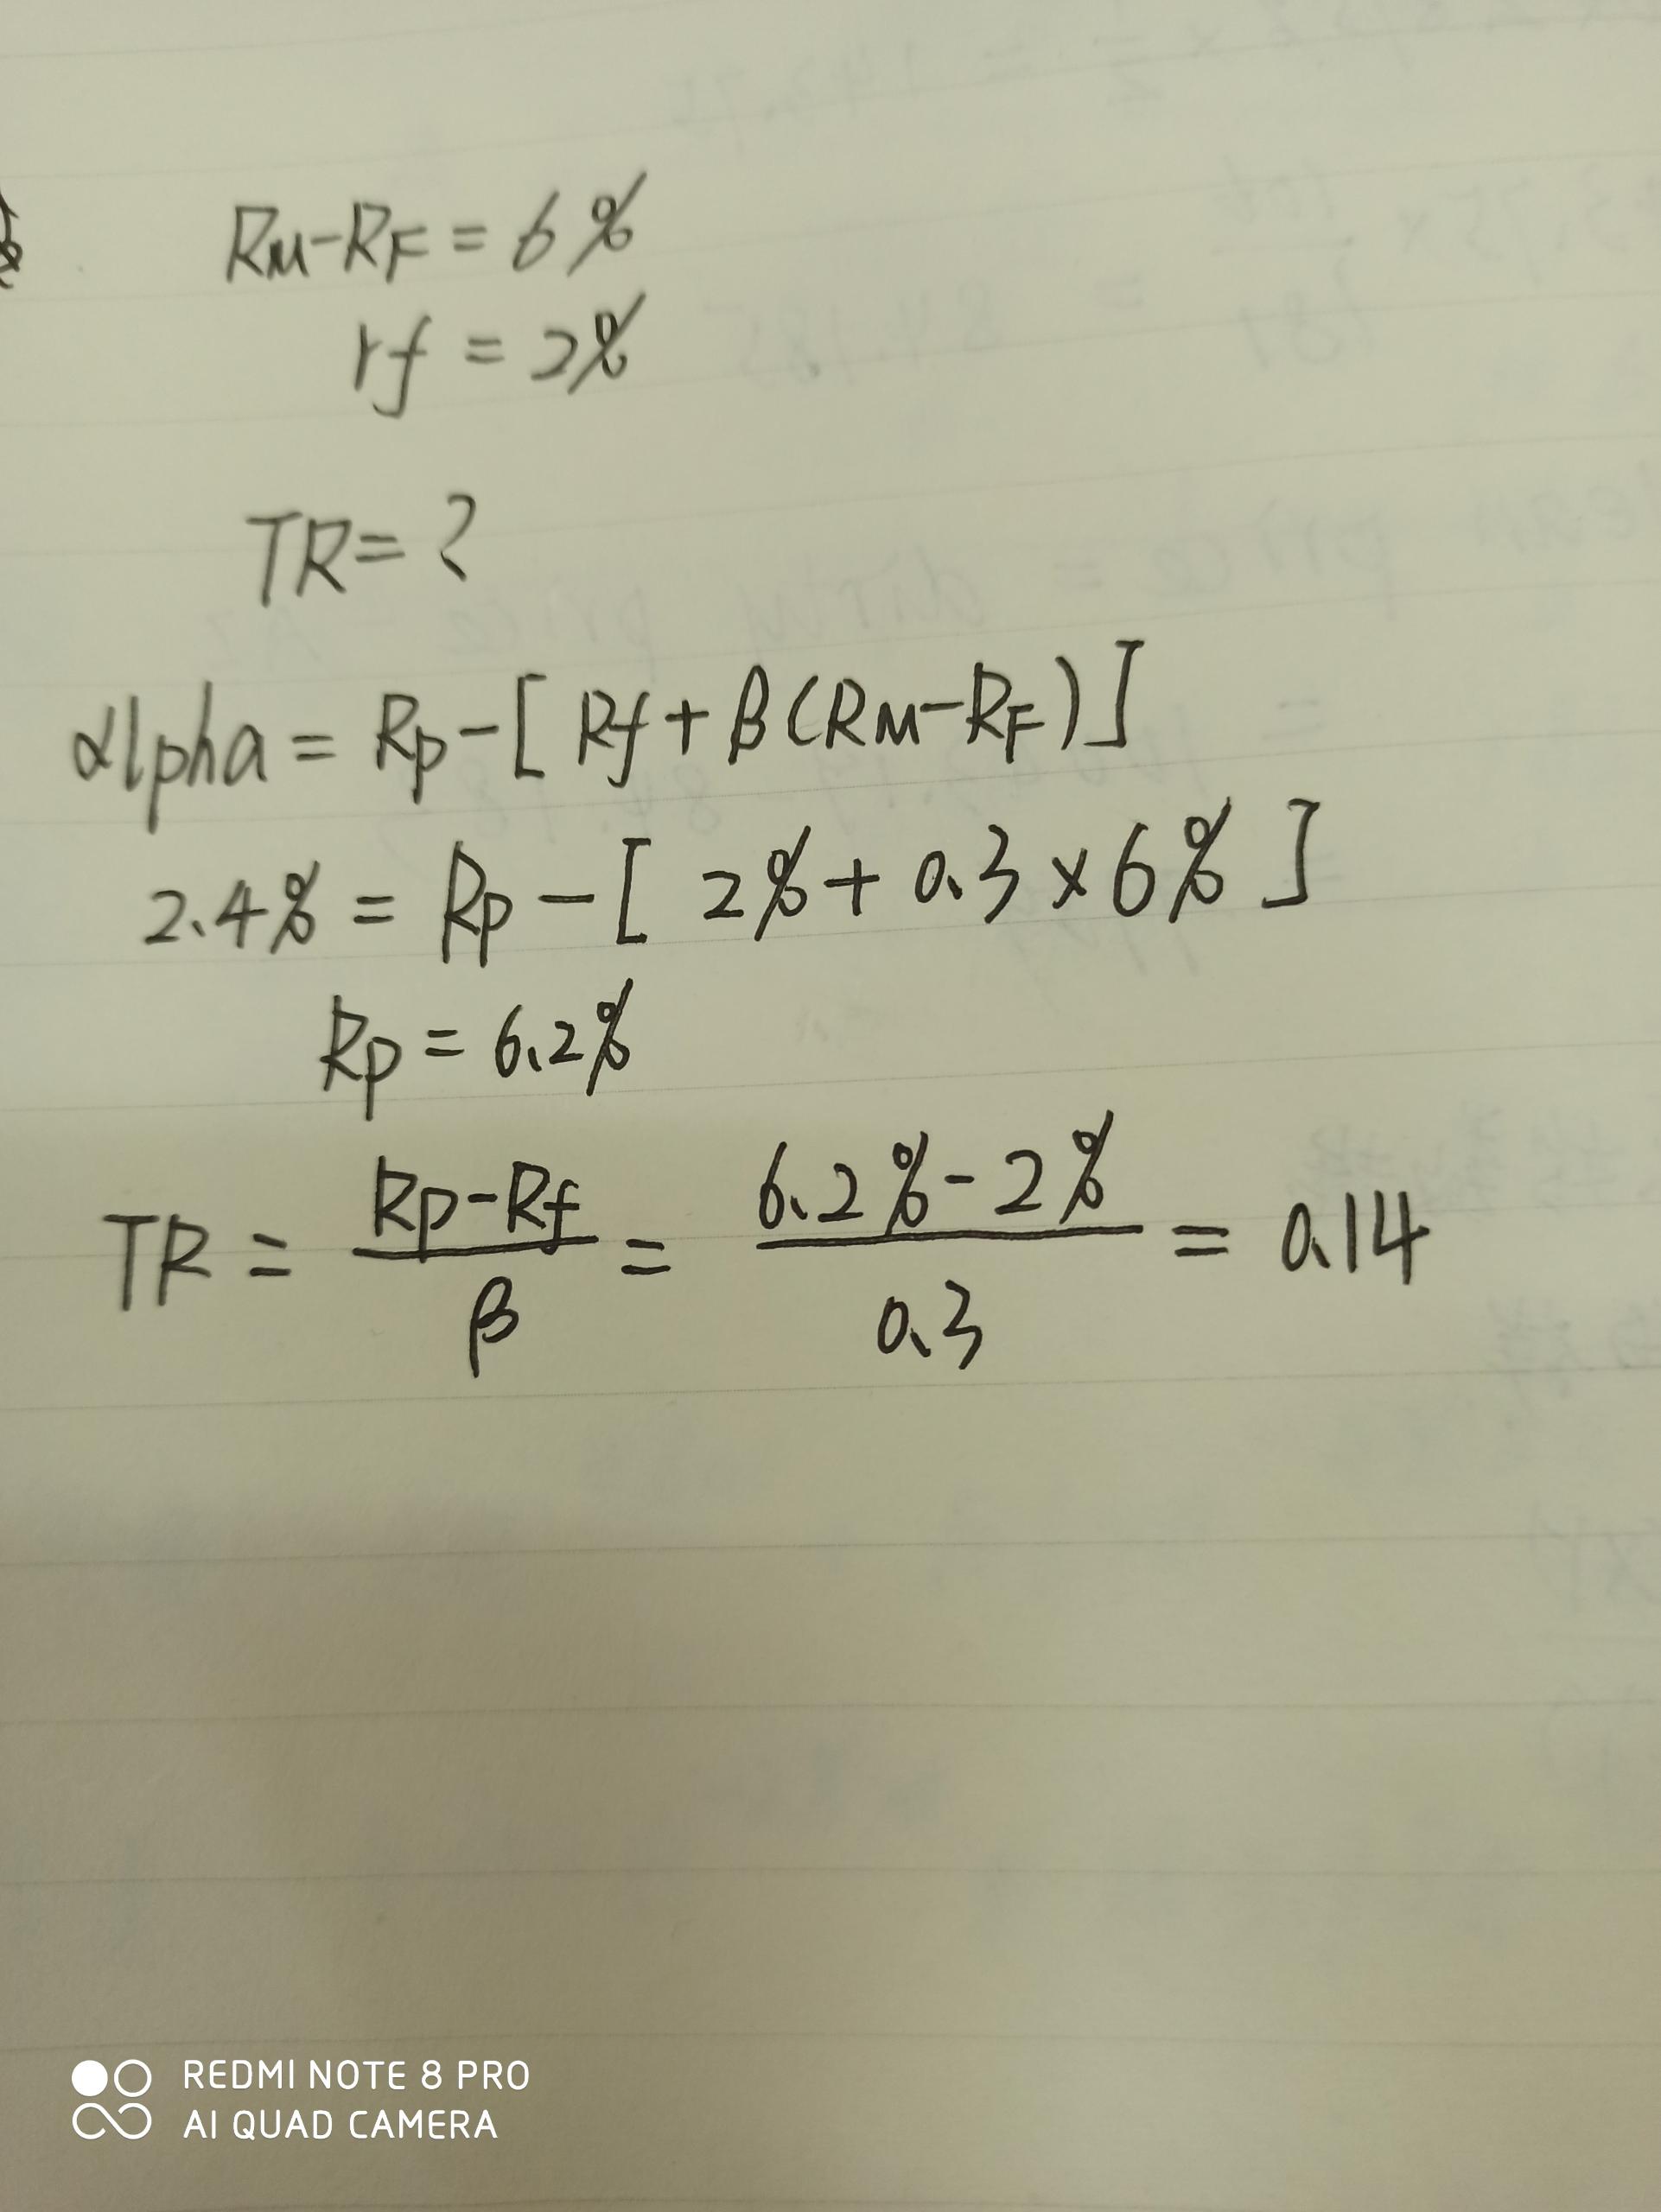 RM-RF = 6%
rf = 2%
TR = ?
alpha = Rp - [ Rf + β(RM-RF)]
2.4% = Rp - [ 2% + 0.3 x 6% ]
Rp = 6.2%
TR = Rp-Rf / β = 6.2% - 2% / 0.3 = 0.14
REDMI NOTE 8 PRO
AI QUAD CAMERA